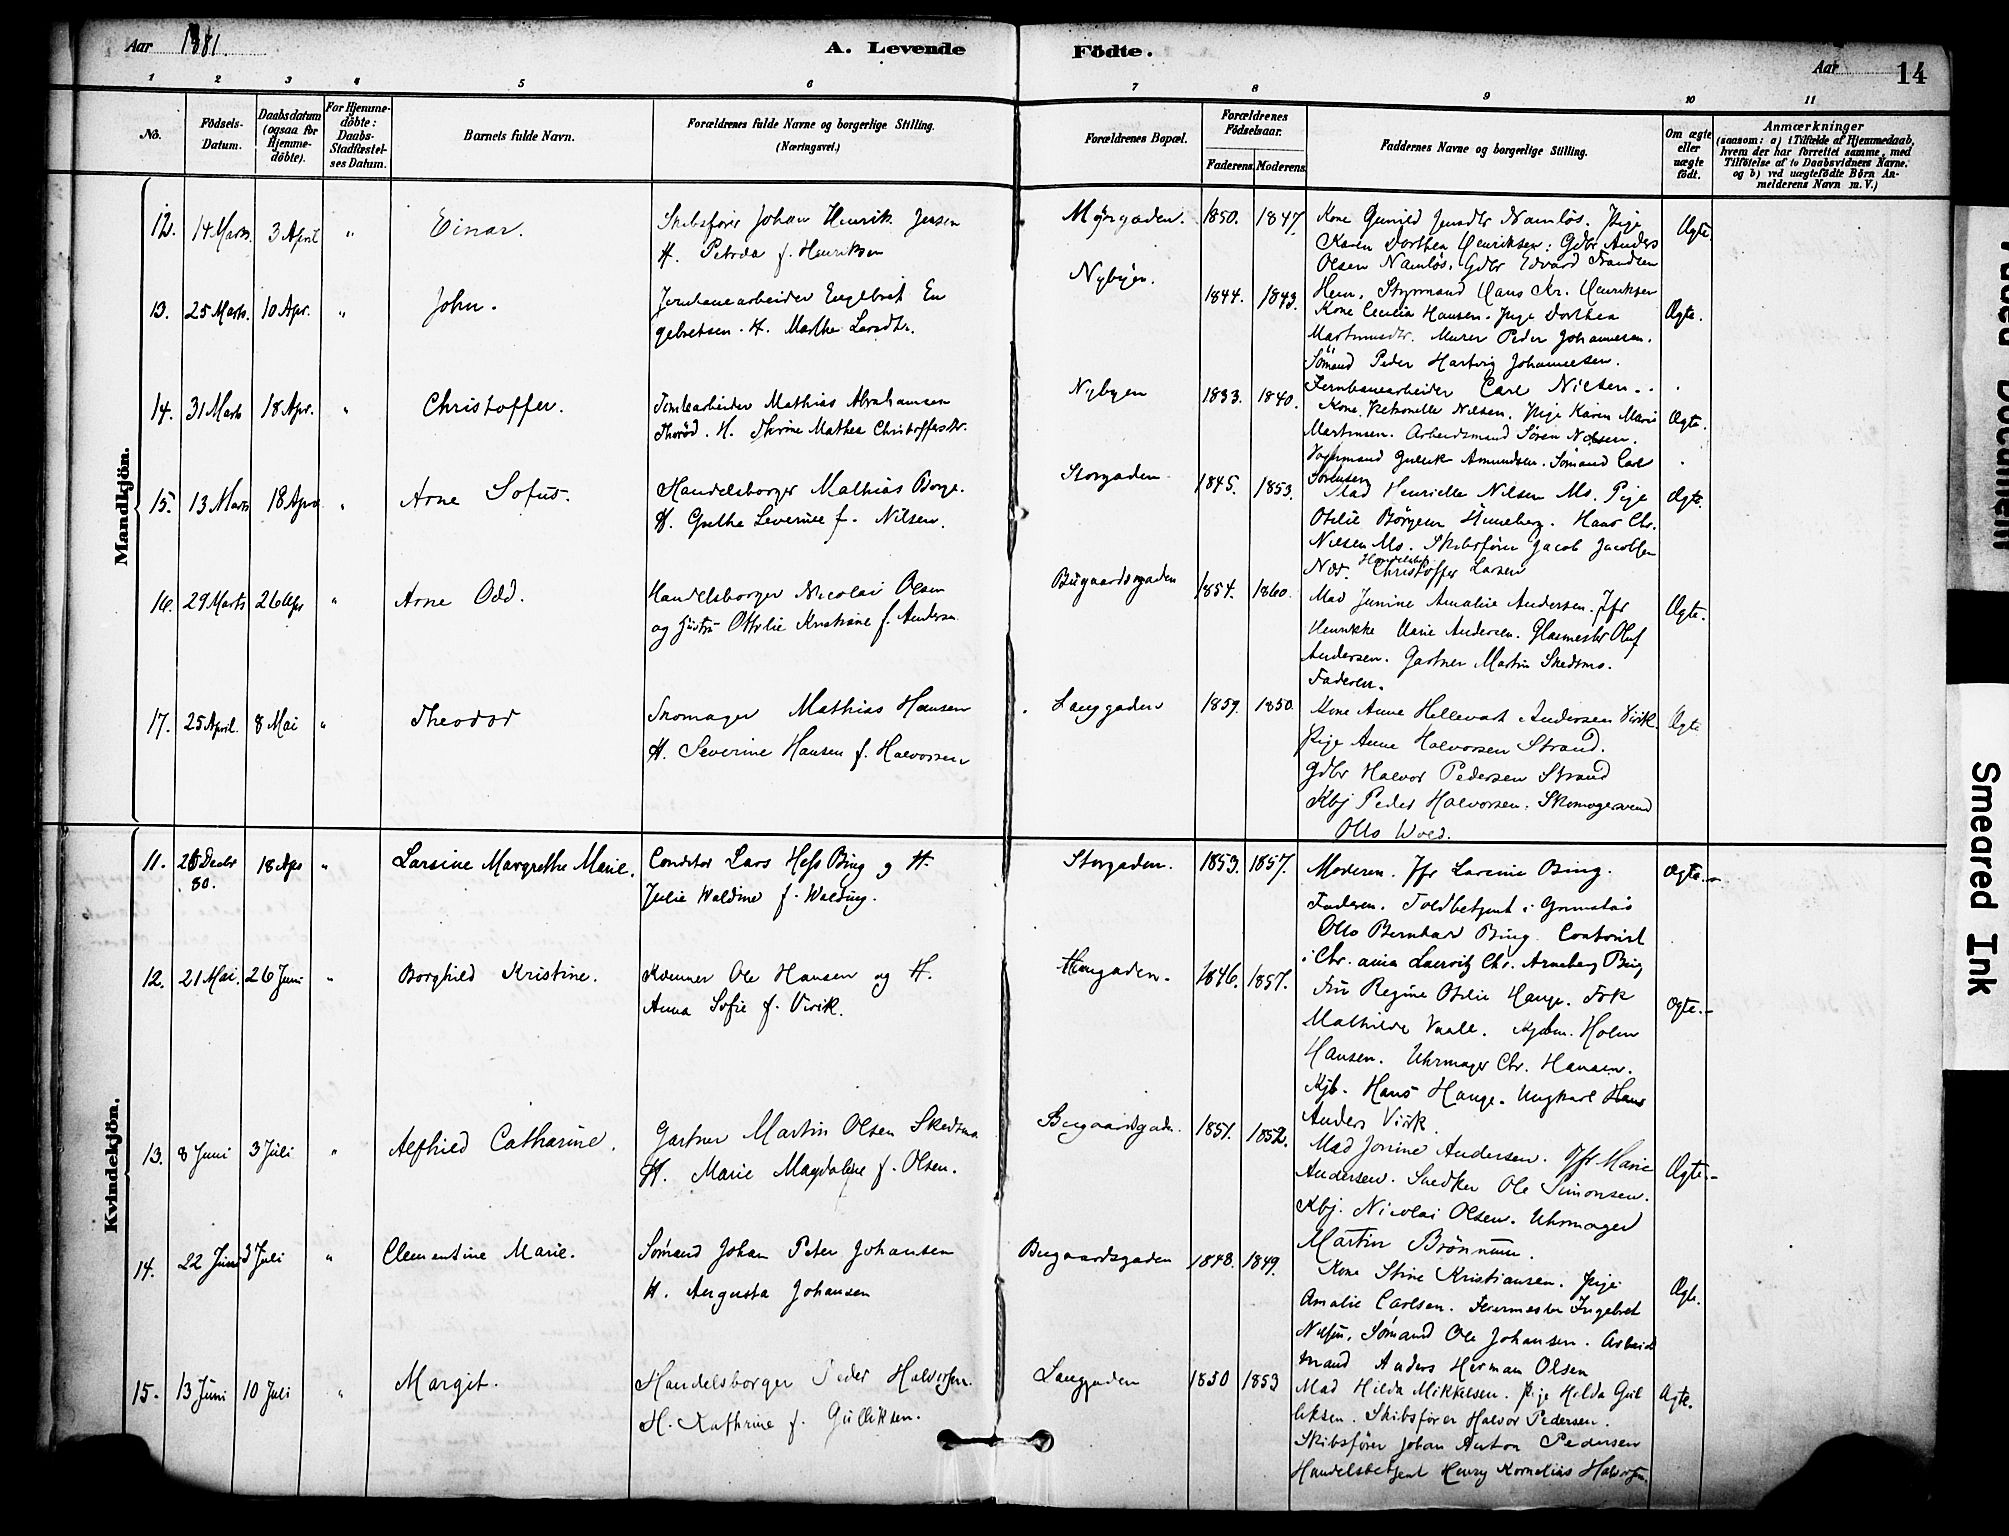 Aar 1881.
A. Levende Födte.
Aar
14
1 2 3 4 5 6 7 8 9 10 11
Nô.
Födsels-Datum.
Daabsdatum (ogsaa for Hjemme-döbte).
For Hjemme-döbte: Daabs-Stadfæstel-ses Datum.
Barnets fulde Navn.
Forældrenes fulde Navne og borgerlige Stilling.
(Næringsvei.)
Forældrenes Bopæl.
Forældrenes Födselsaar.
Faderens. Moderens.
Faddernes Navne og borgerlige Stilling.
Om ægte eller uægte födt.
Anmærkninger
(saasom: a) i Tilfælde af Hjemmedaab,
hvem der har forrettet samme, med
Tilföielse af to Daabsvidners Navne.
og b) ved uægtefödte Börn An-
melderens Navn m. V.)
Mandkjön.
12. 14 Marts 3 April " Einar.
Skibsfører Johan Henrik Jensen
H. Petrea f. Henriksen
Møjegaden. 1850. 1847.
Kone Gunild Jensdtr Namløs. Pige
Karen Dorthea Henriksen. Gdbr Anders
Olsen Namløs. Gdbr Edvard Frandsen
Hem. Styrmand Hans Kr. Henriksen
Ægte.
13. 25 Marts. 10 Apr. " John.
Jernbanearbeider Engelbret En
gebretsen. H. Marthe Larsdtr.
Nybyen. 1844. 1843.
Kone Cecilia Hansen. Pige Dorthea
Martinusdtr. Murer Peder Johannesen.
Sømand Peder Hartvig Johannesen.
Jernbanearbeider Carl Nilsen.
Ægte.
14. 31 Marts 18 Apr. " Christoffer.
Tomtearbeider Mathias Abrahamsen
Thorød. H. Thrine Mathea Christoffersdtr.
Nybyen 1833. 1840.
Kone Petronelle Nilsen. Pige Karen Marie
Martinsen. Arbeidsmand Søren Nilsen.
Vognmand Gullik Amundsen. Sømand Carl
Sørensen
Ægte.
15. 13 Marts 18 Apr. " Arne Sofus.
Handelsborger Mathias Borge.
H. Grethe Severine f. Nilsen.
Storgaden 1845. 1853.
Mad Henriette Nilsen Ms. Pige
Otilie Børgesen Hunneberg. Hans Chr.
Nilsen Ms. Skibsfører Jacob Jacobsen
Nør. Handelsbetj Christoffer Larsen
Ægte.
16. 29 Marts 26 Apr " Arne Odd.
Handelsborger Nicolai Olsen
og Hustru Ottilie Kristiane f. Andersen
Bugaardsgaden 1854. 1860.
Mad Jensine Amalie Andersen. Jfr
Henrikke Marie Andersen. Glasmester Oluf
Andersen. Gartner Martin Skedsmo.
Faderen.
Ægte.
17. 25 April. 8 Mai " Theodor
Skomager Mathias Hansen
H. Severine Hansen f. Halvorsen
Langgaden 1859. 1850.
Kone Anne Hellevart Andersen Virik.
Pige Anne Halvorsen Strand.
Gdbr Halvor Pedersen Strand
Kbj Peder Halvorsen. Skomagersvend
Otto Wold.
Ægte
Kvindekjön.
11. 25 Decbr 80. 18 Apr " Larsine Margrethe Marie.
Conditor Lars Hess Bing og H.
Julie Waldine f. Walding.
Storgaden. 1853. 1857.
Moderen. Jfr Larsine Bing.
Faderen. Toldbetjent i Grimstad
Otto Bernhard Bing. Contorist
i Chr. ania Lauritz Chr. Arneberg Bing
Ægte.
12. 21 Mai. 26 Juni " Borghild Kristine.
Kæmner Ole Hansen og H.
Anna Sofie f. Virik.
1846. 1857.
Fru Regine Otilie Hauge. Frk
Mathilde Vaall. Kjøbm. Holm
Hansen. Uhrmager Chr. Hansen.
Kjb. Hans Hauge. Ungkarl Hans
Anders Virik.
Ægte.
13. 8 Juni 3 Juli " Alfhild Catharine.
Gartner Martin Olsen Skedsmo
H. Marie Magdalene f. Olsen.
Bugaardsgaden. 1851. 1852.
Mad Jonine Andersen. Jfr Marie
Andersen. Snedker Ole Simonsen.
Kbj. Nicolai Olsen. Uhrmager
Martin Brönnum.
Ægte.
14. 22 Juni 3 Juli " Clementine Marie.
Sømand Johan Peter Johansen
H. Augusta Johansen
Bugaardsgaden 1848. 1849.
Kone Stine Kristiansen. Pige
Amalie Carlsen. Feiermester Ingebret
Nilsen. Sømand Ole Johansen. Arbeids
mand Anders Herman Olsen
Ægte.
15. 13 Juni 10 Juli " Margit.
Handelsborger Peder Halvorsen.
H. Kathrine f. Gulliksen.
Langgaden 1850 1853
Mad Hilda Mikkelsen. Pige Hilda Gul
liksen. Skibsfører Halvor Pedersen.
Skibsfører Johan Anton Pedersen
Handelsbetjent Henry Kornelius Halvorsen
Ægte.
Smeared Ink